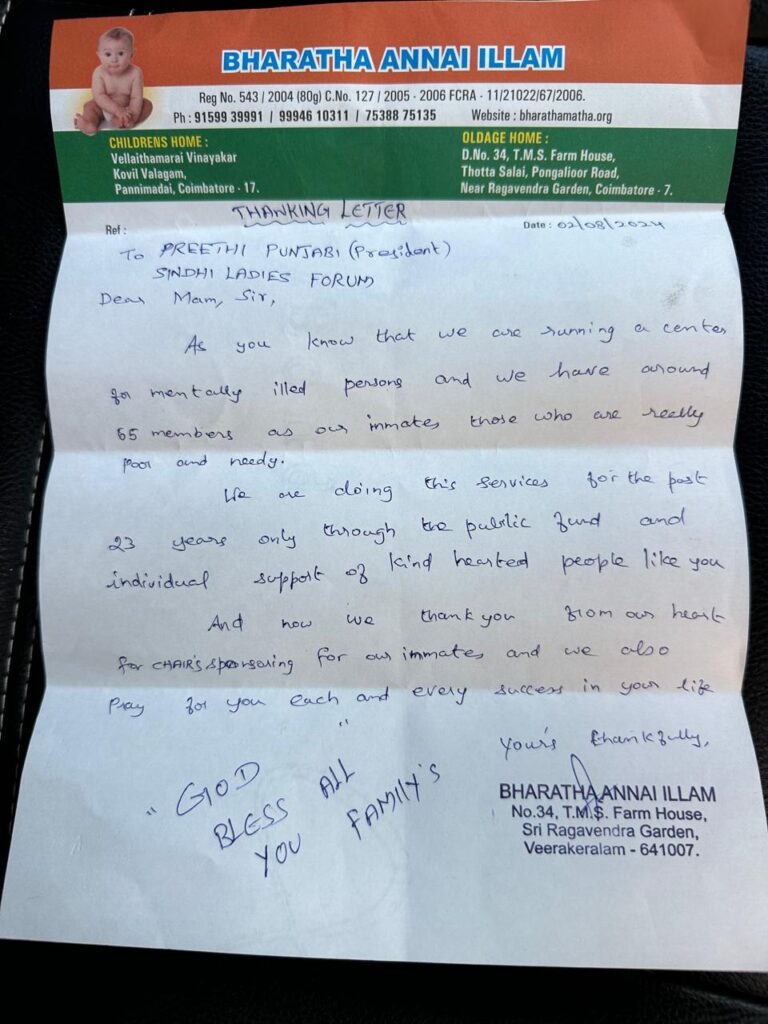 BHARATHA ANNAI ILLAM
Reg No. 543 / 2004 (80g) C.No. 127 / 2005 - 2006 FCRA - 11/21022/67/2006.
Ph : 91599 39991 / 99946 10311 / 75388 75135 Website : bharathamatha.org
CHILDRENS HOME :
Vellaithamarai Vinayakar
Kovil Valagam,
Pannimadai, Coimbatore - 17.
OLDAGE HOME :
D.No. 34, T.M.S. Farm House,
Thotta Salai, Pongalioor Road,
Near Ragavendra Garden, Coimbatore - 7.
THANKING LETTER
Ref : Date : 02/08/2024
To PREETHI PUNJABI (President)
SINDHI LADIES FORUM
Dear Mam, Sir,
As you know that we are running a center
for mentally illed persons and we have around
65 members as our inmates those who are really
poor and needy.
We are doing this services for the past
23 years only through the public fund and
individual support of kind hearted people like you
And now we thank you from our heart
for CHAIR's sponsoring for our immates and we also
Pray for you each and every success in your life
"GOD
BLESS ALL
YOU FAMILY'S"
Your's thankfully,
BHARATHA ANNAI ILLAM
No.34, T.M.S. Farm House,
Sri Ragavendra Garden,
Veerakeralam - 641007.